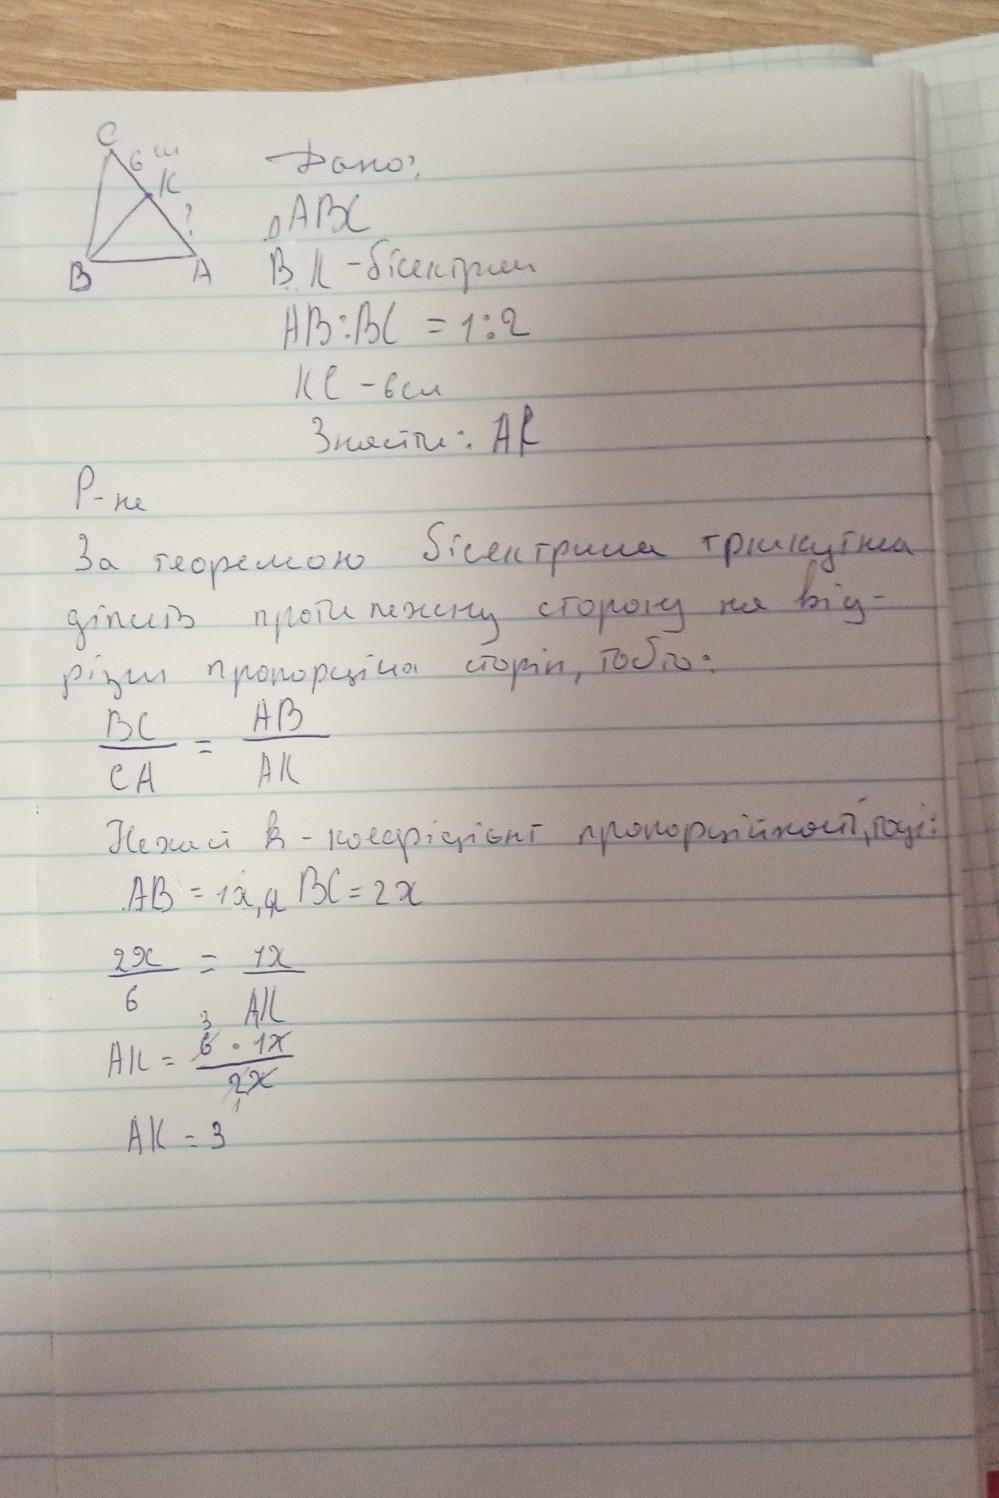 C
6 см
K
?
B
A
Дано:
△ABC
BK - бісектриса
AB:BC = 1:2
KC - 6см
Знайти: AK
Р-ня
За теоремою бісектриса трикутника
ділить протилежну сторону на від-
різки пропорційна сторін, тобто:
BC/CA = AB/AK
Нехай k - коефіцієнт пропорційності, тоді:
AB = 1x, а BC = 2x
2x/6 = 1x/AK
3
AK = 6 · 1x/2x
1
AK = 3